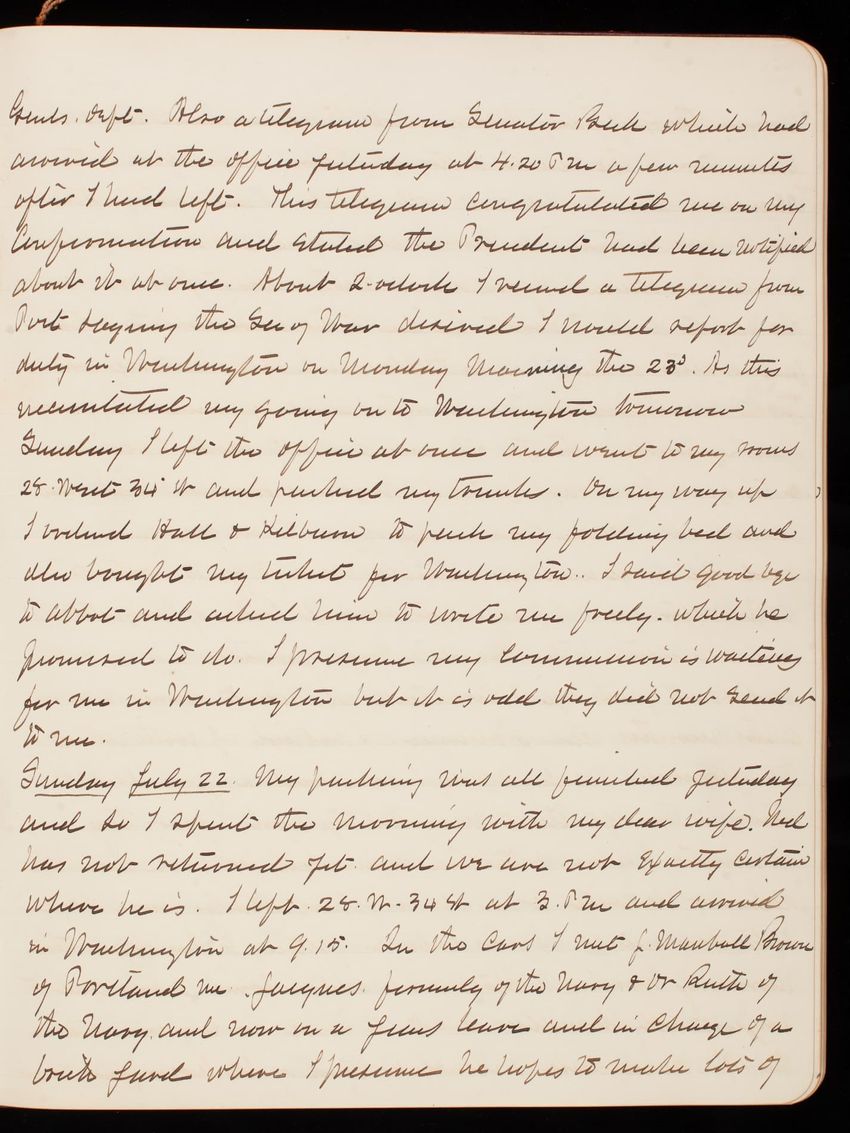 Genls. Dept. Also a telegram from Senator Beck which had
arrived at the office yesterday at 4.20 P m a few minutes
after I had left. This telegram congratulated me on my
Confirmation and stated the President had been notified
about it at once. About 2-oclock I received a telegram from
Port saying the Sec of War desired I would report for
duty in Washington on Monday Morning the 23d. As this
necessitated my going on to Washington tomorrow
Sunday I left the office at once and went to my rooms
28. West 34 St and packed my trunks. On my way up
I ordered Hall & Kilburn to pack my folding bed and
also bought my ticket for Washington.. I said good bye
to Abbot and asked him to write me freely. which he
promised to do. I presume my commission is waiting
for me in Washington but it is odd they did not send it
to me.
Sunday July 22. My packing was all finished yesterday
and so I spent the morning with my dear wife. Ned
has not returned yet and we are not Exactly certain
where he is. I left 28. W. 34 St at 3. P m and arrived
in Washington at 9.15. In the Cars I met J. Marshall Brown
of Portland me. Jacques formerly of the Navy & Dr Ruth of
the Navy and now on a years leave and in charge of a
brick yard where I presume he hopes to make lots of